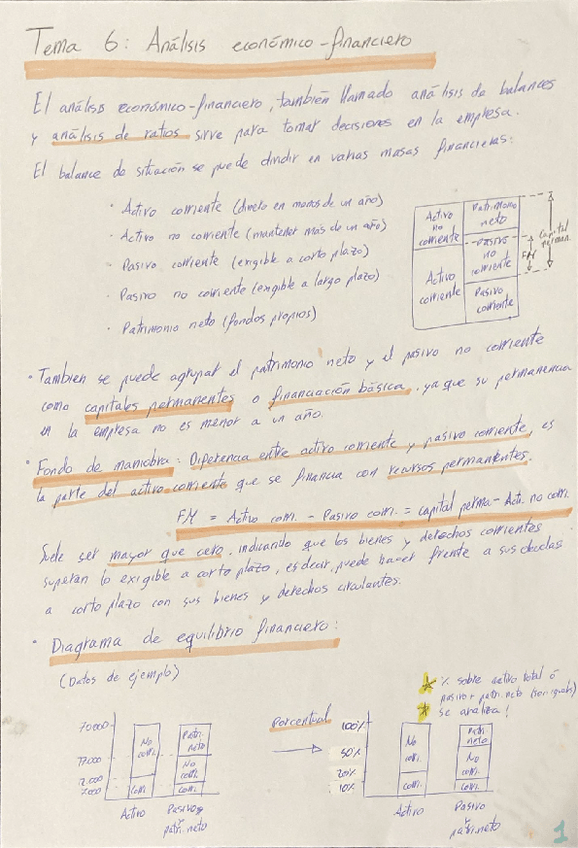 Tema 6: Análisis económico-financiero
El análisis económico-financiero, también llamado análisis de balances
y análisis de ratios sirve para tomar decisiones en la empresa.
El balance de situación se puede dividir en varias masas financieras:
· Activo corriente (dinero en menos de un año)
· Activo no corriente (mantener más de un año)
· Pasivo corriente (exigible a corto plazo)
· Pasivo no corriente (exigible a largo plazo)
· Patrimonio neto (fondos propios)
Activo no corriente
Patrimonio neto
Pasivo no corriente
Activo corriente
Pasivo corriente
FM
Capital perman.
· Tambien se puede agrupar el patrimonio neto y el pasivo no corriente
como capitales permanentes o financiación básica, ya que su permanencia
en la empresa no es menor a un año.
· Fondo de maniobra: Diferencia entre activo corriente y pasivo corriente, es
la parte del activo corriente que se financia con recursos permanentes.
FM = Activo corri. - Pasivo corri. = capital perma - Acti. no corri.
Suele ser mayor que cero, indicando que los bienes y derechos corrientes
superan lo exigible a corto plazo, es decir, puede hacer frente a sus deudas
a corto plazo con sus bienes y derechos circulantes.
· Diagrama de equilibrio financiero:
(Datos de ejemplo)
% sobre activo total ó
pasivo + patri. neto (son iguales)
se analiza!
70000
No corri.
Corri.
Patri. neto
No corri.
Corri.
Activo
Pasivo y patri. neto
Porcentual
100%
50%
20%
10%
No corri.
Corri.
Patri. neto
No corri.
Corri.
Activo
Pasivo y patri. neto
1